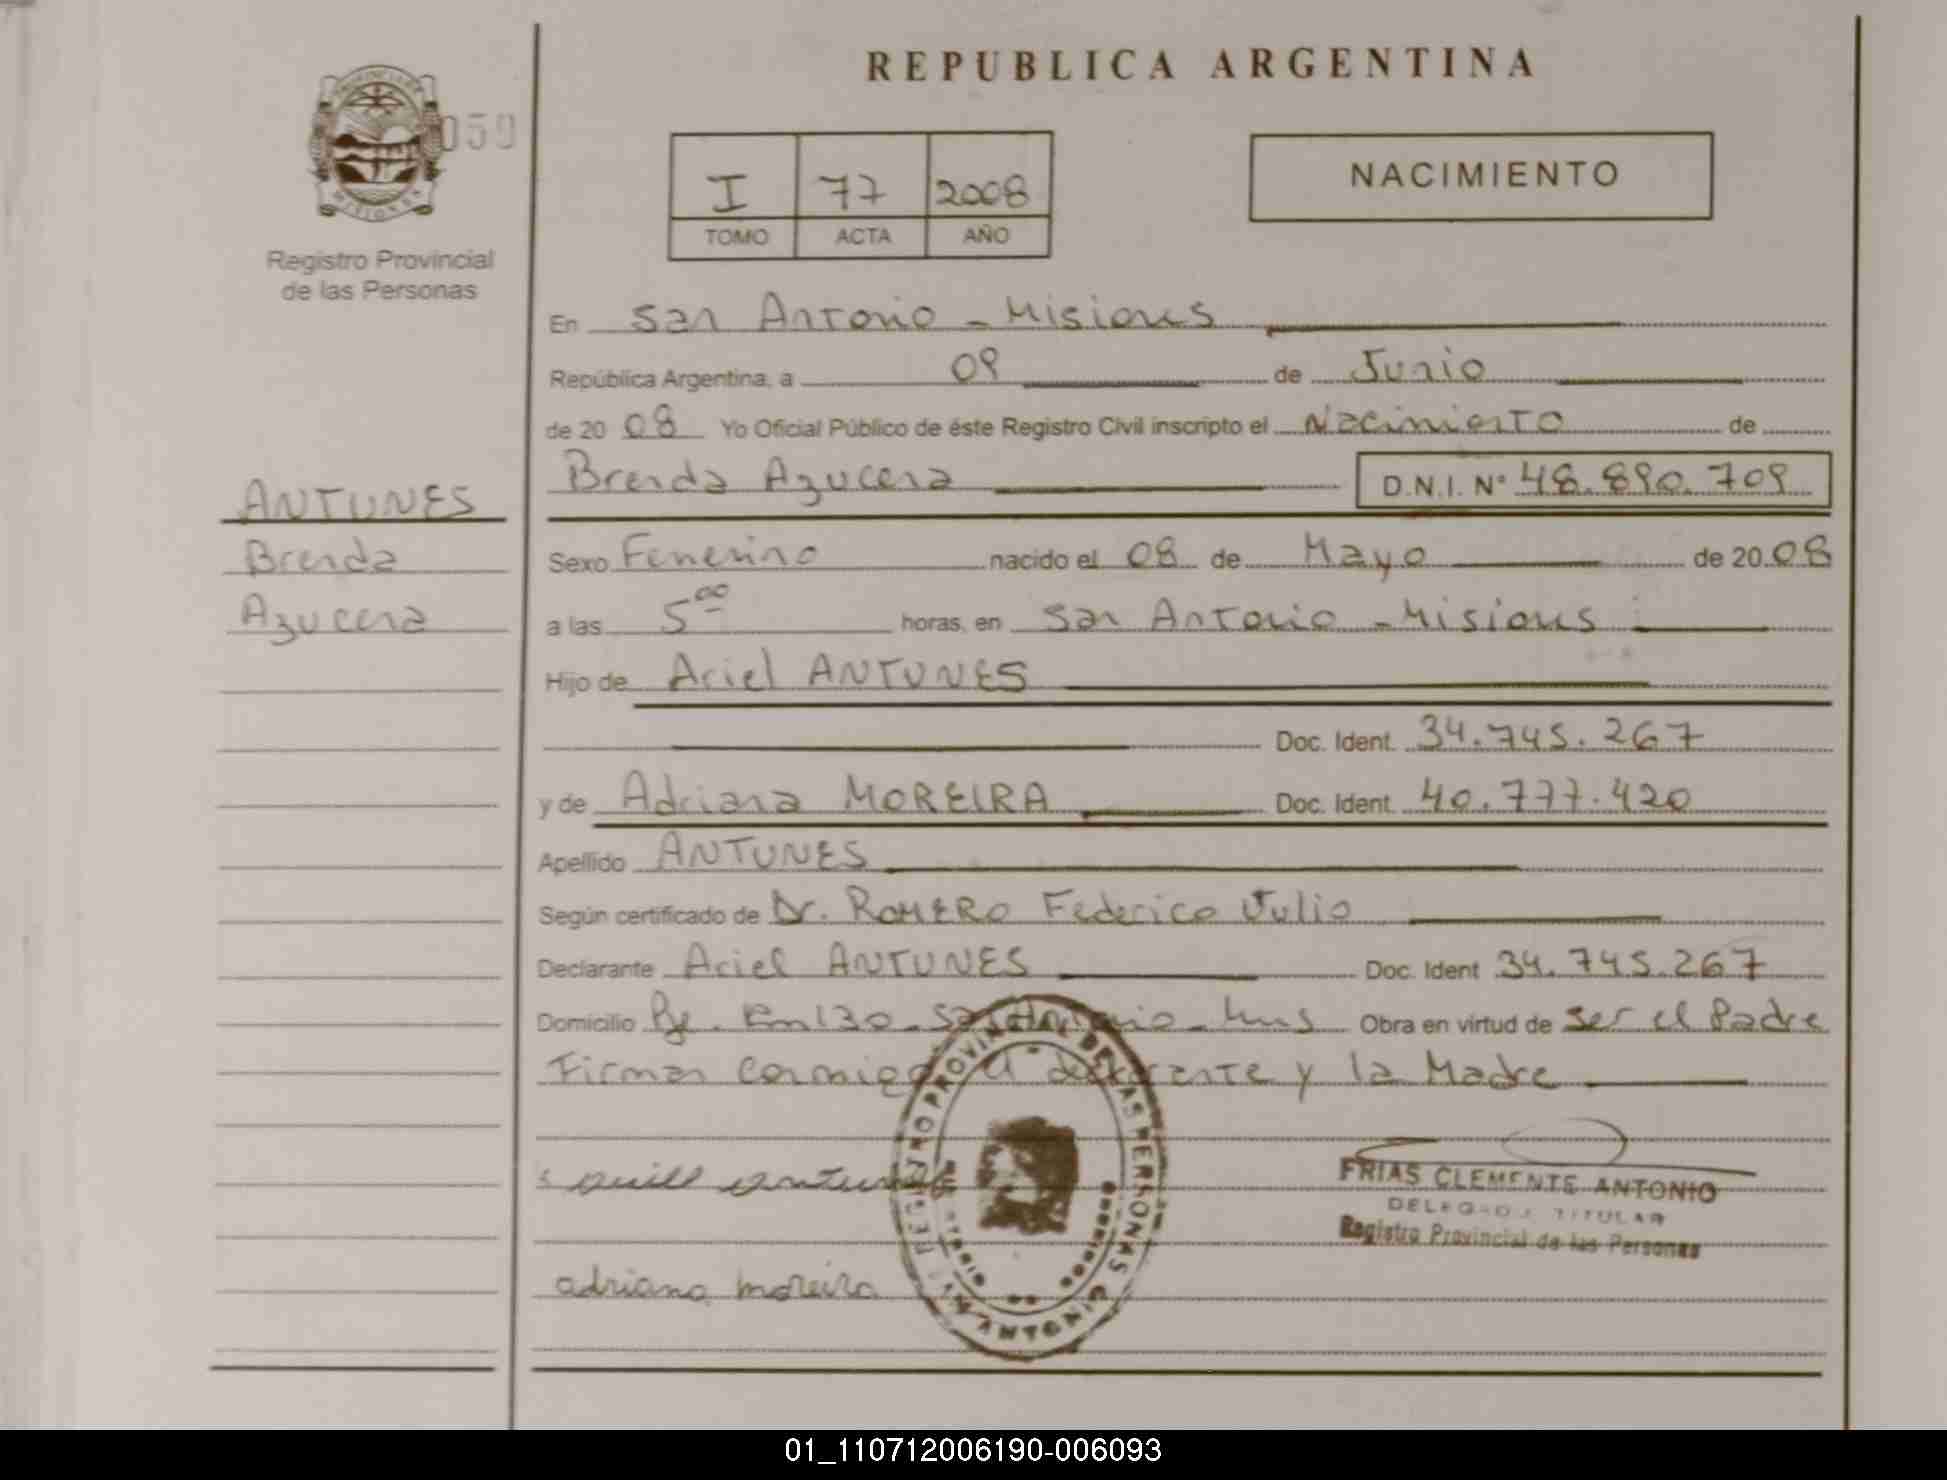 REPUBLICA ARGENTINA
PROVINCIA DE
MISIONES
059
Registro Provincial
de las Personas
I 77 2008
TOMO ACTA AÑO
NACIMIENTO
En San Antonio - Misiones
República Argentina, a 09 de Junio
de 20 08 Yo Oficial Público de éste Registro Civil inscripto el Nacimiento de
Brenda Azucena D.N.I. N° 48.890.709
ANTUNES
Brenda
Azucena
Sexo Femenino nacido el 08 de Mayo de 20 08
a las 5 00 horas, en San Antonio - Misiones
Hijo de Ariel ANTUNES
Doc. Ident. 34.745.267
y de Adriana MOREIRA Doc. Ident. 40.777.420
Apellido ANTUNES
Según certificado de Dr. ROMERO Federico Julio
Declarante Ariel ANTUNES Doc. Ident 34.745.267
Domicilio San Antonio - Mns Obra en virtud de ser el Padre
Firman conmigo el declarante y la Madre
antunes
adriana moreira
REGISTRO PROVINCIAL DE LAS PERSONAS
SAN ANTONIO
FRIAS CLEMENTE ANTONIO
DELEGADO TITULAR
Registro Provincial de las Personas
01_110712006190-006093